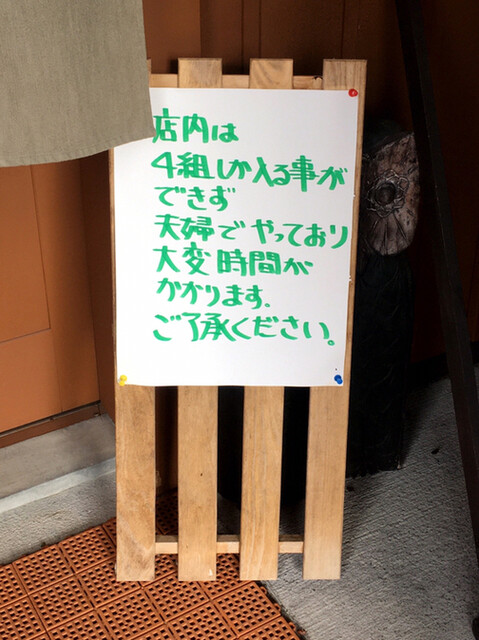 店内は
4組しか入る事が
できず
夫婦でやっており
大変時間が
かかります.
ご了承ください。